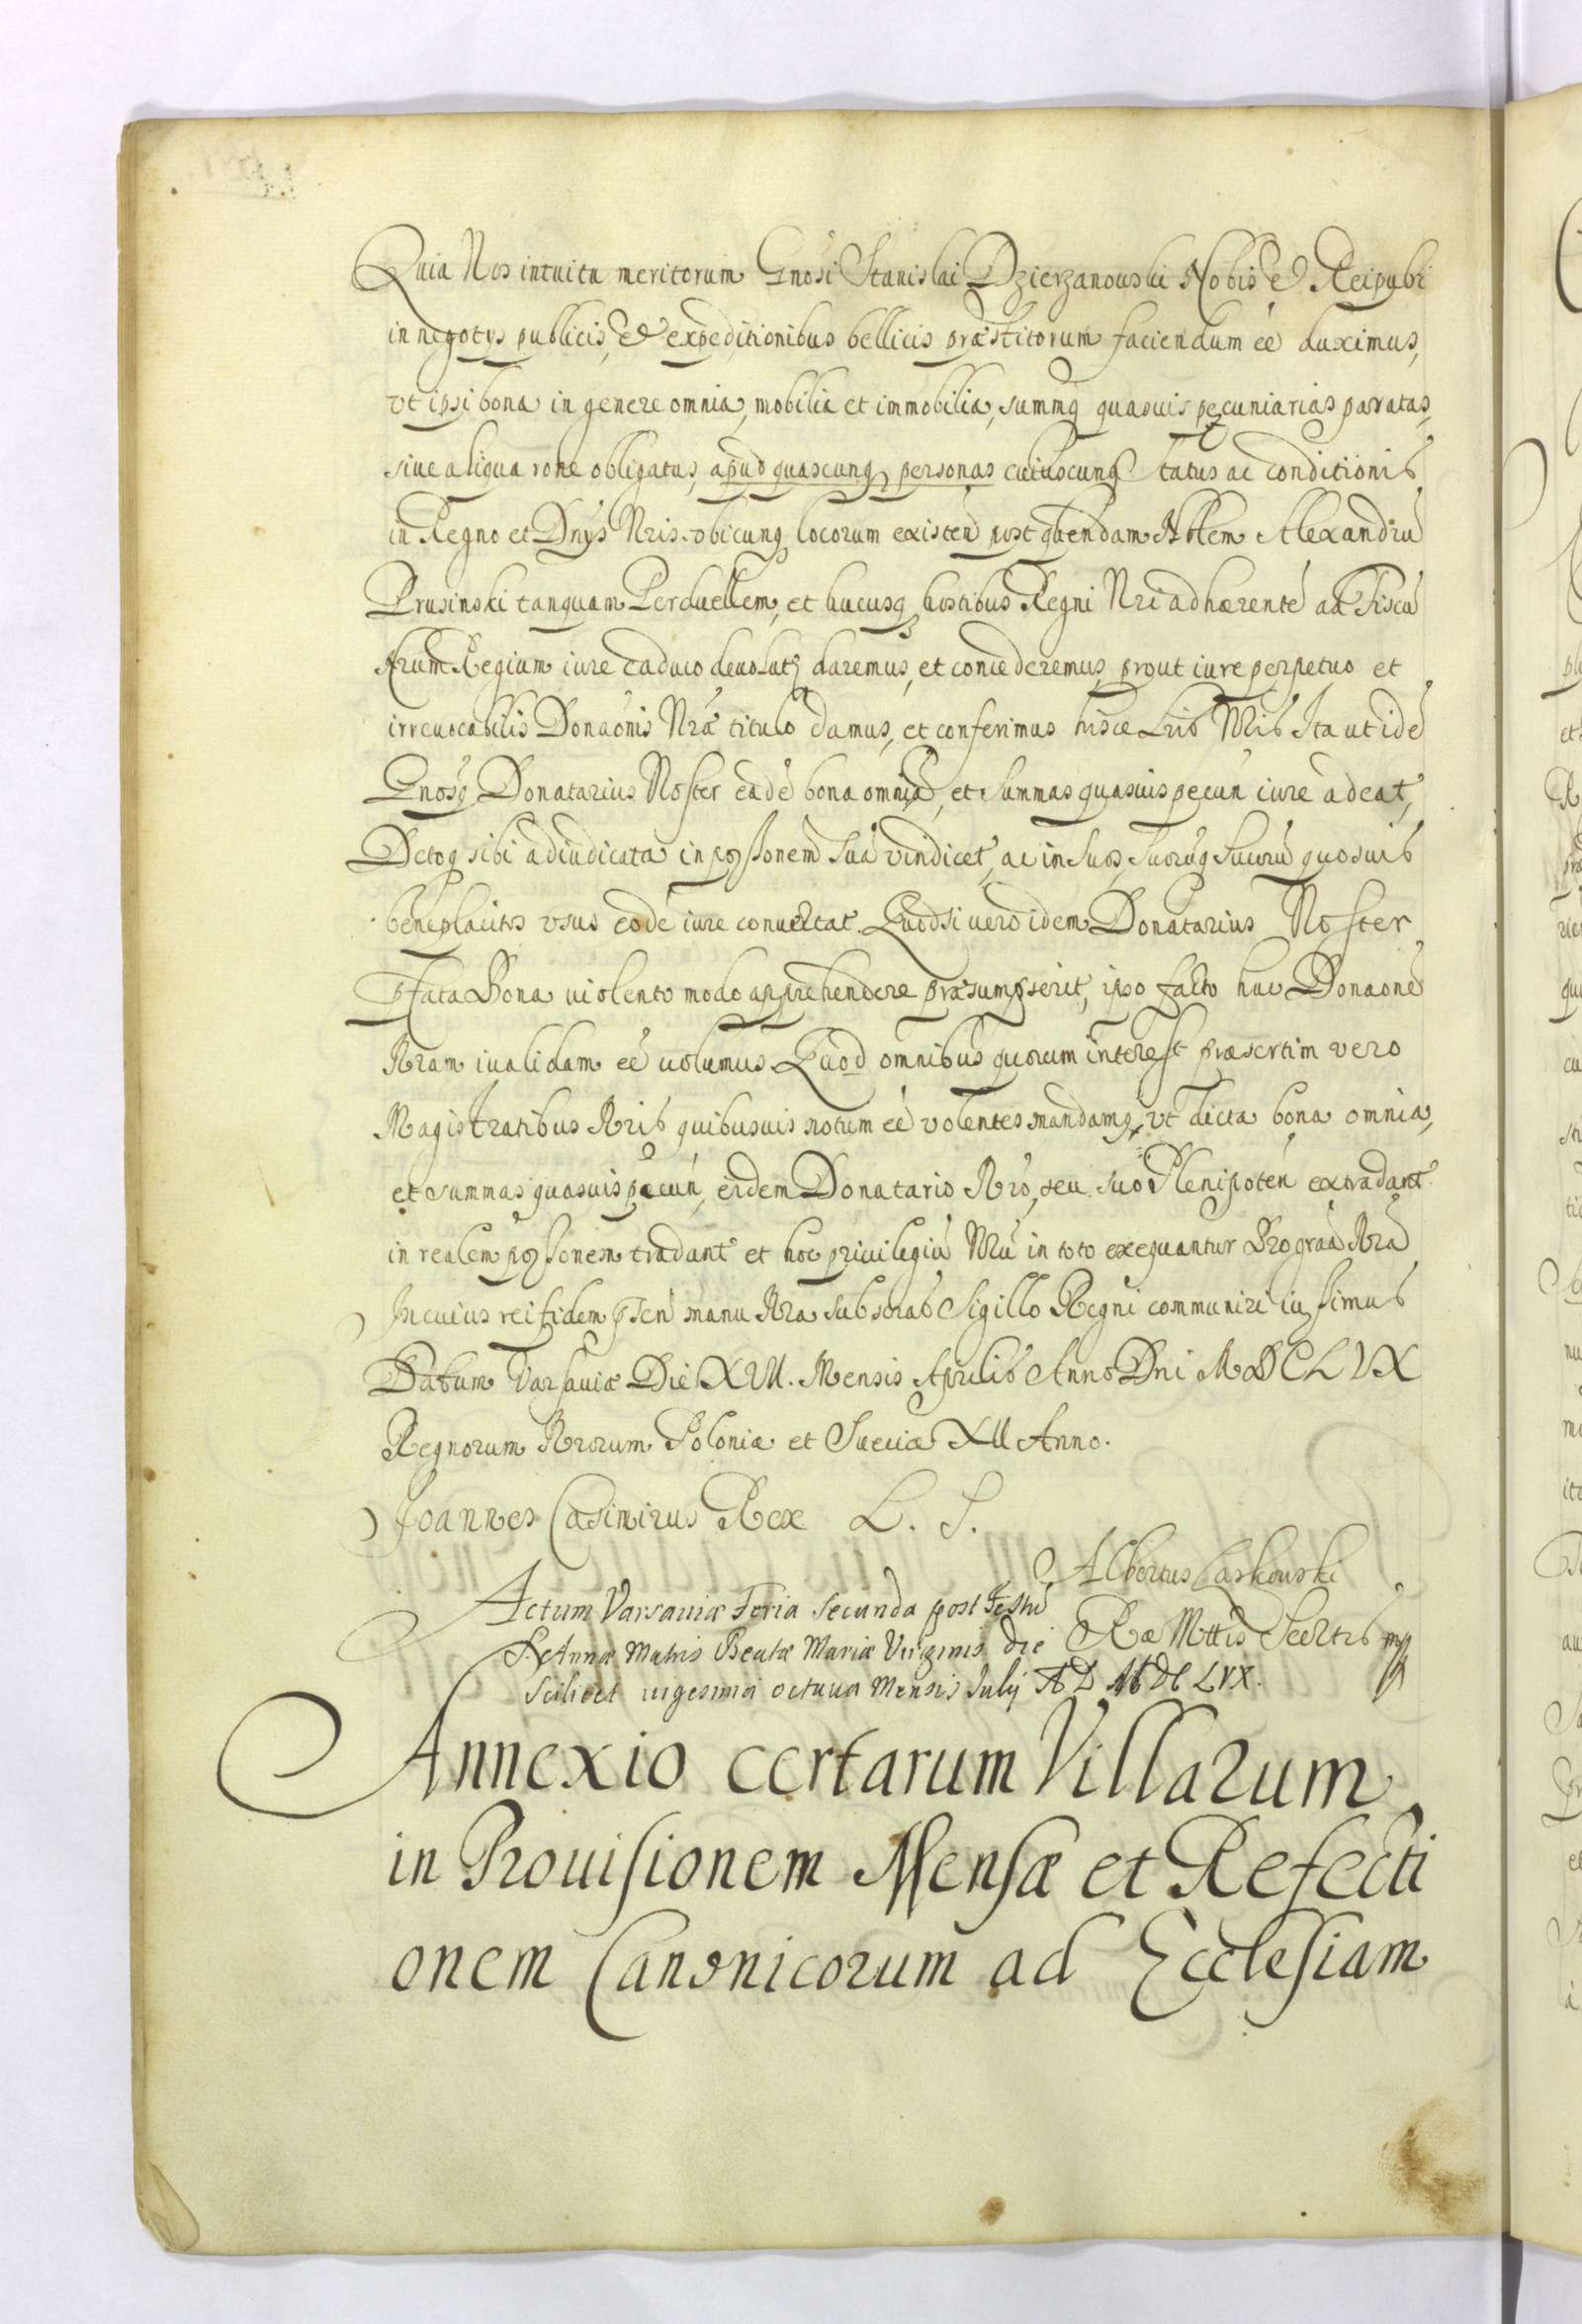 Quia Nos intuitu meritorum Gnosi Stanislai Dzierzanouski Nobis et Reipubl
in negotys publicis, et expeditionibus bellicis præstitorum faciendum eé duximus,
vt ipsi bona in genere omnia, mobilia et immobilia, summq quasuis pecuniarias paratas,
siue aliqua rone obligatas, apud quascunq personas cuiuscunq status ac conditionis
in Regno et Dnys Nris vbicunq locorum existeñ post quendam Nblem Alexandrũ
Prusinski tanquam Perduellem, et hucusq hostibus Regni Nri adhærente ad Fiscũ
Nrum Regium iure caduco deuolutq daremus, et concederemus, prout iure perpetuo et
irreuocabilis Donaonis Nrã titulo damus, et conferimus hisce Lris Nris Ita ut idẽ
Gnosq Donatarius Noster eadẽ bona omnia, et summas quasuis pecun iure adeat,
Dctoq sibi adiudicata in possonem suã vindicet, ac in suos, suorũq succorũ quosuis
beneplacitos vsus eodẽ iure conuertat. Quodsi uero idem Donatarius Noster
pfata Bona uiolento modo apprehendere præsumpserit, ipso facto hac Donaonẽ
Nram iualidam eé uolumus. Quod omnibus quorum interest præsertim vero
Magistratibus Nris quibusuis notum eé volentes mandamq, vt dicta bona omnia,
et summas quasuis pecun, eidem Donatario Nro, seu suo Plenipoteñ extradant
in realem possonem tradant et hoc priuilegiũ Nrũ in toto exequantur Pro graã Nrã
In cuius rei fidem pseñ manu Nra subscrãs Sigillo Regni communiri iussimus
Datum Varsauiæ Die XVII. Mensis Aprilis Anno Dni MDCLVX
Regnorum Nrorum Poloniæ et Sueciæ XII Anno.
Joannes Casimirus Rex L. S.
Albertus Laskouski
Ræ Mttis Secrtis mp
Actum Varsauiæ Feria secunda post Festũ
S. Annæ Matris Beatæ Mariæ Virginis die
scilicet uigesima octaua Mensis Julij A D MDCLVX.
Annexio certarum Villarum
in Prouisionem Mensæ et Refecti
onem Canonicorum ad Ecclesiam